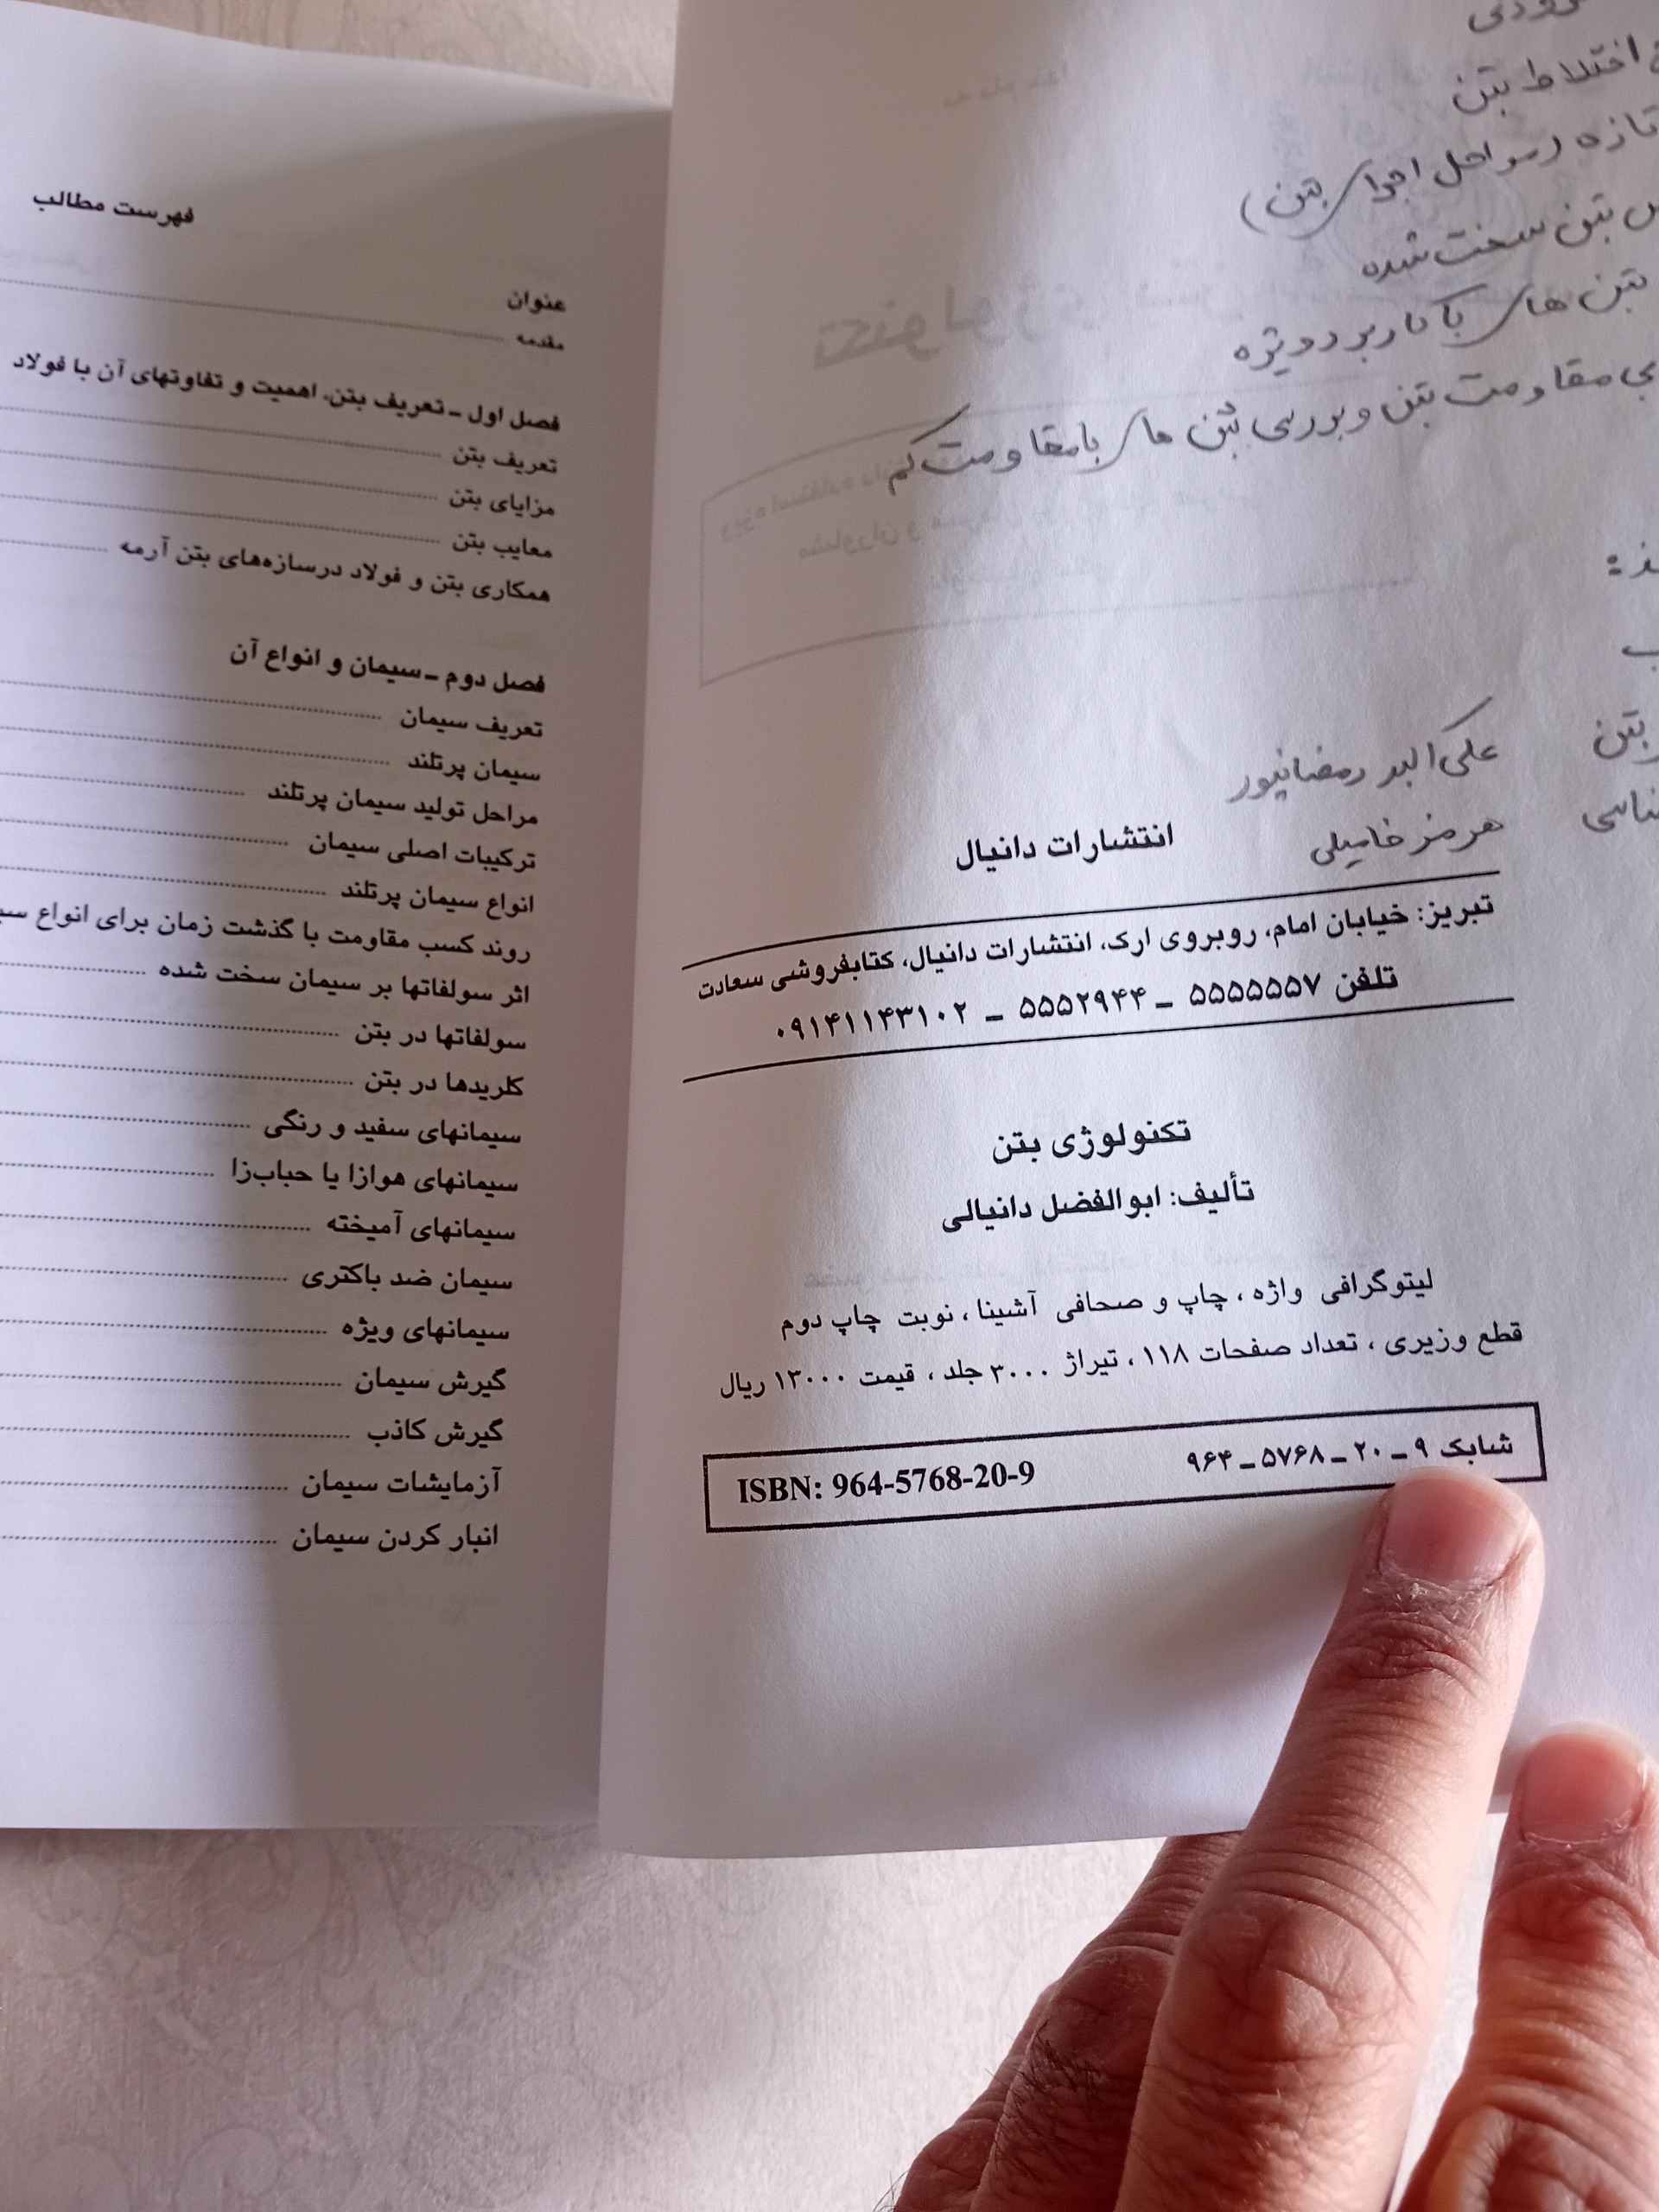 اختلاط بتن
تازه (مراحل اجرای بتن)
بتن سخت شده
بتن های با کاربرد ویژه
مقاومت بتن و بررسی بتن های با مقاومت کم
بتن
علی اکبر رمضانپور
هرمز فامیلی
انتشارات دانیال
تبریز: خیابان امام، روبروی ارک، انتشارات دانیال، کتابفروشی سعادت
تلفن ۵۵۵۵۵۵۷ ـ ۵۵۵۲۹۴۴ ـ ۰۹۱۴۱۱۴۳۱۰۲
تکنولوژی بتن
تألیف: ابوالفضل دانیالی
لیتوگرافی واژه ، چاپ و صحافی آشینا ، نوبت چاپ دوم
قطع وزیری ، تعداد صفحات ۱۱۸ ، تیراژ ۳۰۰۰ جلد ، قیمت ۱۳۰۰۰ ریال
شابک ۹ ـ ۲۰ ـ ۵۷۶۸ ـ ۹۶۴
ISBN: 964-5768-20-9
فهرست مطالب
عنوان
مقدمه
فصل اول ـ تعریف بتن، اهمیت و تفاوتهای آن با فولاد
تعریف بتن
مزایای بتن
معایب بتن
همکاری بتن و فولاد درسازه‌های بتن آرمه
فصل دوم ـ سیمان و انواع آن
تعریف سیمان
سیمان پرتلند
مراحل تولید سیمان پرتلند
ترکیبات اصلی سیمان
انواع سیمان پرتلند
روند کسب مقاومت با گذشت زمان برای انواع
اثر سولفاتها بر سیمان سخت شده
سولفاتها در بتن
کلریدها در بتن
سیمانهای سفید و رنگی
سیمانهای هوازا یا حباب‌زا
سیمانهای آمیخته
سیمان ضد باکتری
سیمانهای ویژه
گیرش سیمان
گیرش کاذب
آزمایشات سیمان
انبار کردن سیمان